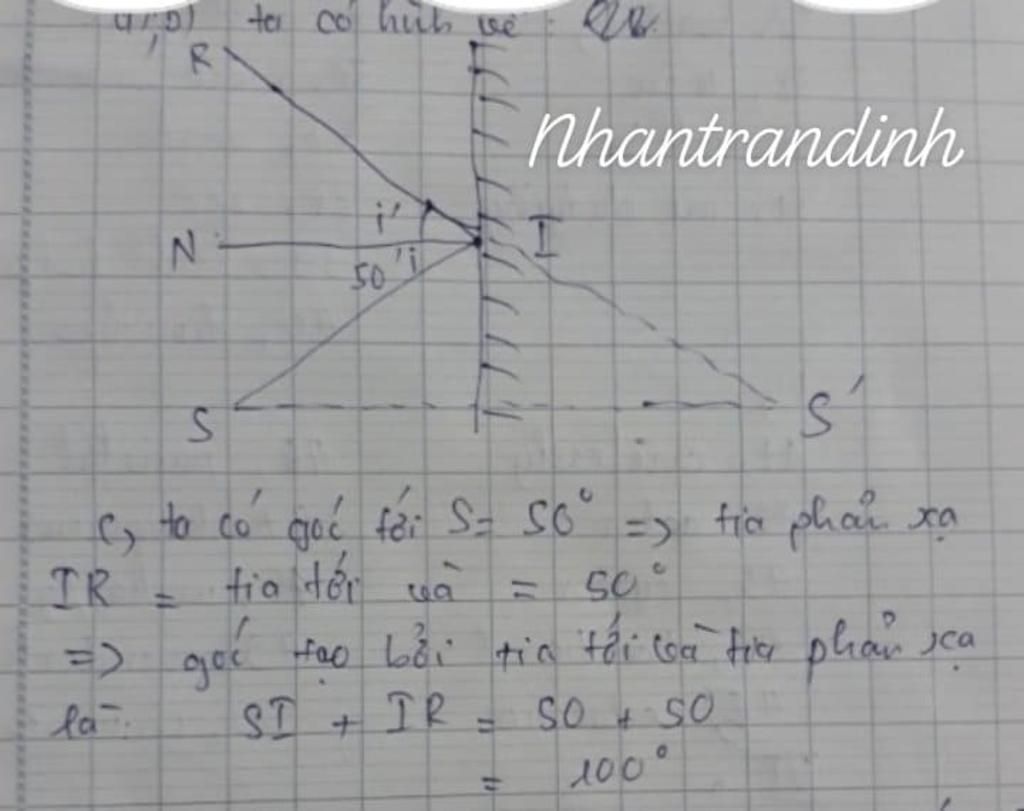 a, b) ta có hình vẽ:
R
Nhantrandinh
i'
I
N
50 i
S
S'
c, ta có góc tới S = 50° => tia phản xạ
IR = tia tới và = 50°
=> góc tạo bởi tia tới và tia phản xạ
là: SI + IR = 50 + 50
= 100°